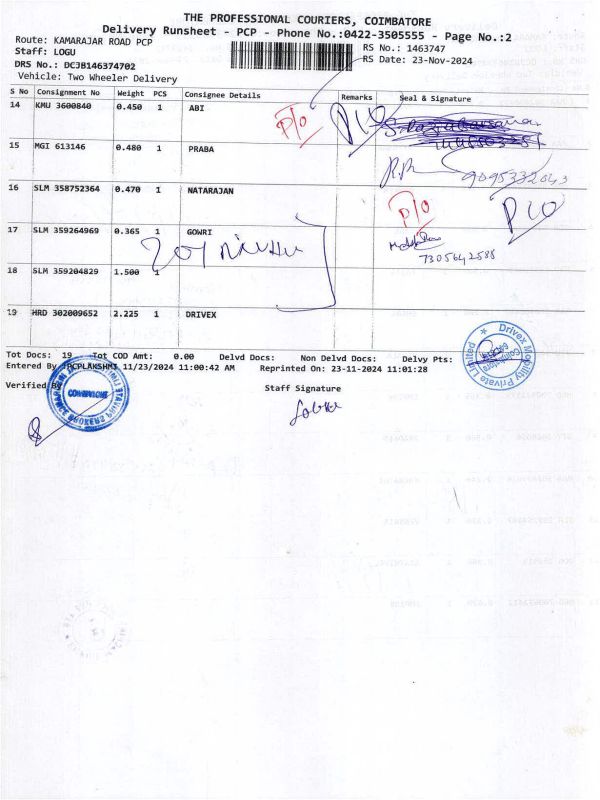 THE PROFESSIONAL COURIERS, COIMBATORE
Delivery Runsheet - PCP - Phone No.:0422-3505555 - Page No.:2
Route: KAMARAJAR ROAD PCP RS No.: 1463747
Staff: LOGU RS Date: 23-Nov-2024
DRS No.: DCJB146374702
Vehicle: Two Wheeler Delivery
S No Consignment No Weight PCS Consignee Details Remarks Seal & Signature
14 KMU 3600840 0.450 1 ABI P/O
15 MGI 613146 0.480 1 PRABA
9095332043
16 SLM 358752364 0.470 1 NATARAJAN P/O
17 SLM 359264969 0.365 1 GOWRI
7305642588
18 SLM 359204829 1.500 1
19 HRD 302009652 2.225 1 DRIVEX
Tot Docs: 19 Tot COD Amt: 0.00 Delvd Docs: Non Delvd Docs: Delvy Pts:
Entered By :PCPLAKSHMI 11/23/2024 11:00:42 AM Reprinted On: 23-11-2024 11:01:28
Verified By Staff Signature
Drivex Mobility Private Limited
Coimbatore
COIMBATORE